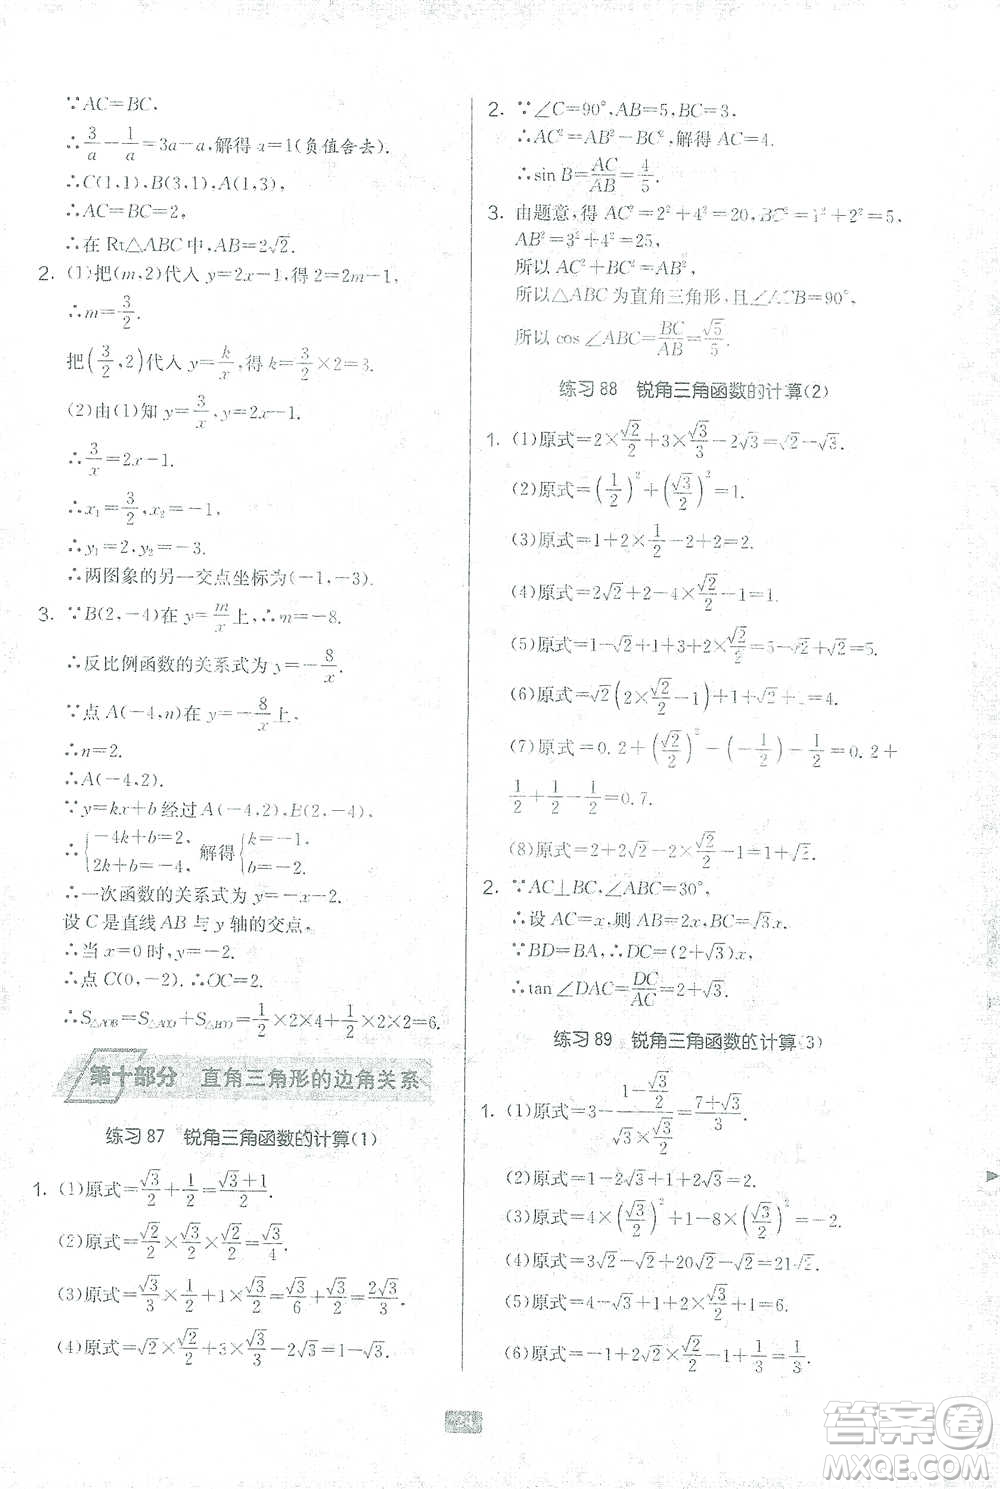 ∵AC=BC.
∴3/a-1/a=3a-a,解得 a=1(负值舍去).
∴C(1,1),B(3,1),A(1,3),
∴AC=BC=2,
∴在 Rt△ABC 中,AB=2√2.
2. (1)把(m,2)代入 y=2x-1,得 2=2m-1,
∴m=3/2.
把(3/2,2)代入 y=k/x,得 k=3/2×2=3.
(2)由(1)知 y=3/x,y=2x-1.
∴3/x=2x-1.
∴x₁=3/2,x₂=-1,
∴y₁=2,y₂=-3.
∴两图象的另一交点坐标为(-1,-3).
3. ∵B(2,-4)在 y=m/x上,∴m=-8.
∴反比例函数的关系式为 y=-8/x.
∵点 A(-4,n)在 y=-8/x上,
∴n=2.
∴A(-4,2).
∵y=kx+b 经过 A(-4,2),B(2,-4),
∴{-4k+b=2, 2k+b=-4, 解得{k=-1, b=-2.
∴一次函数的关系式为 y=-x-2.
设 C 是直线 AB 与 y 轴的交点,
∴当 x=0 时,y=-2.
∴点 C(0,-2).∴OC=2.
∴S△AOB=S△ACO+S△BCO=1/2×2×4+1/2×2×2=6.
第十部分 直角三角形的边角关系
练习 87 锐角三角函数的计算(1)
1. (1)原式=√3/2+1/2=(√3+1)/2.
(2)原式=√2/2×√3/2×√2/2=√3/4.
(3)原式=√3/3×1/2+1×√3/2=√3/6+√3/2=2√3/3.
(4)原式=√2×√2/2+3×√3/3-2√3=1-√3.
2. ∵∠C=90°,AB=5,BC=3.
∴AC²=AB²-BC²,∴AC=4.
∴sin B=AC/AB=4/5.
3. 由题意,得 AC²=2²+4²=20,BC²=1²+2²=5,
AB²=3²+4²=25,
所以 AC²+BC²=AB²,
所以△ABC 为直角三角形,且∠ACB=90°,
所以 cos∠ABC=BC/AB=√5/5.
练习 88 锐角三角函数的计算(2)
1. (1)原式=2×√2/2+3×√3/3-2√3=√2-√3.
(2)原式=(1/2)²+(√3/2)²=1.
(3)原式=1+2×1/2-2+2=2.
(4)原式=2√2+1-4×√2/2=1.
(5)原式=1-√2+1+3+2×√2/2=5.
(6)原式=√2(2×√2/2-1)+1+√2+1=4.
(7)原式=0.2+(√2/2)²-(-1/2)-1/2=0.2+
1/2+1/2-1/2=0.7.
(8)原式=2+2√2-4×√2/2+1=3.
2. ∵AC⊥BC,∠ABC=30°,
∴设 AC=x,则 AB=2x,BC=√3x.
∵BD=BA,∴DC=(2+√3)x,
∴tan∠DAC=DC/AC=2+√3.
练习 89 锐角三角函数的计算(3)
(2)原式=1-2-√3+1+√3+2=2.
(3)原式=4×(√3/2)²+1-8×(√3/2)²=-2.
(4)原式=3√2-√2+20√2-√2=21√2.
(5)原式=4-√3+2×√3/2-1=3.
(6)原式=-1+2√2×√2/2-1+1/3=1/3.
答案圈
MXQE.COM